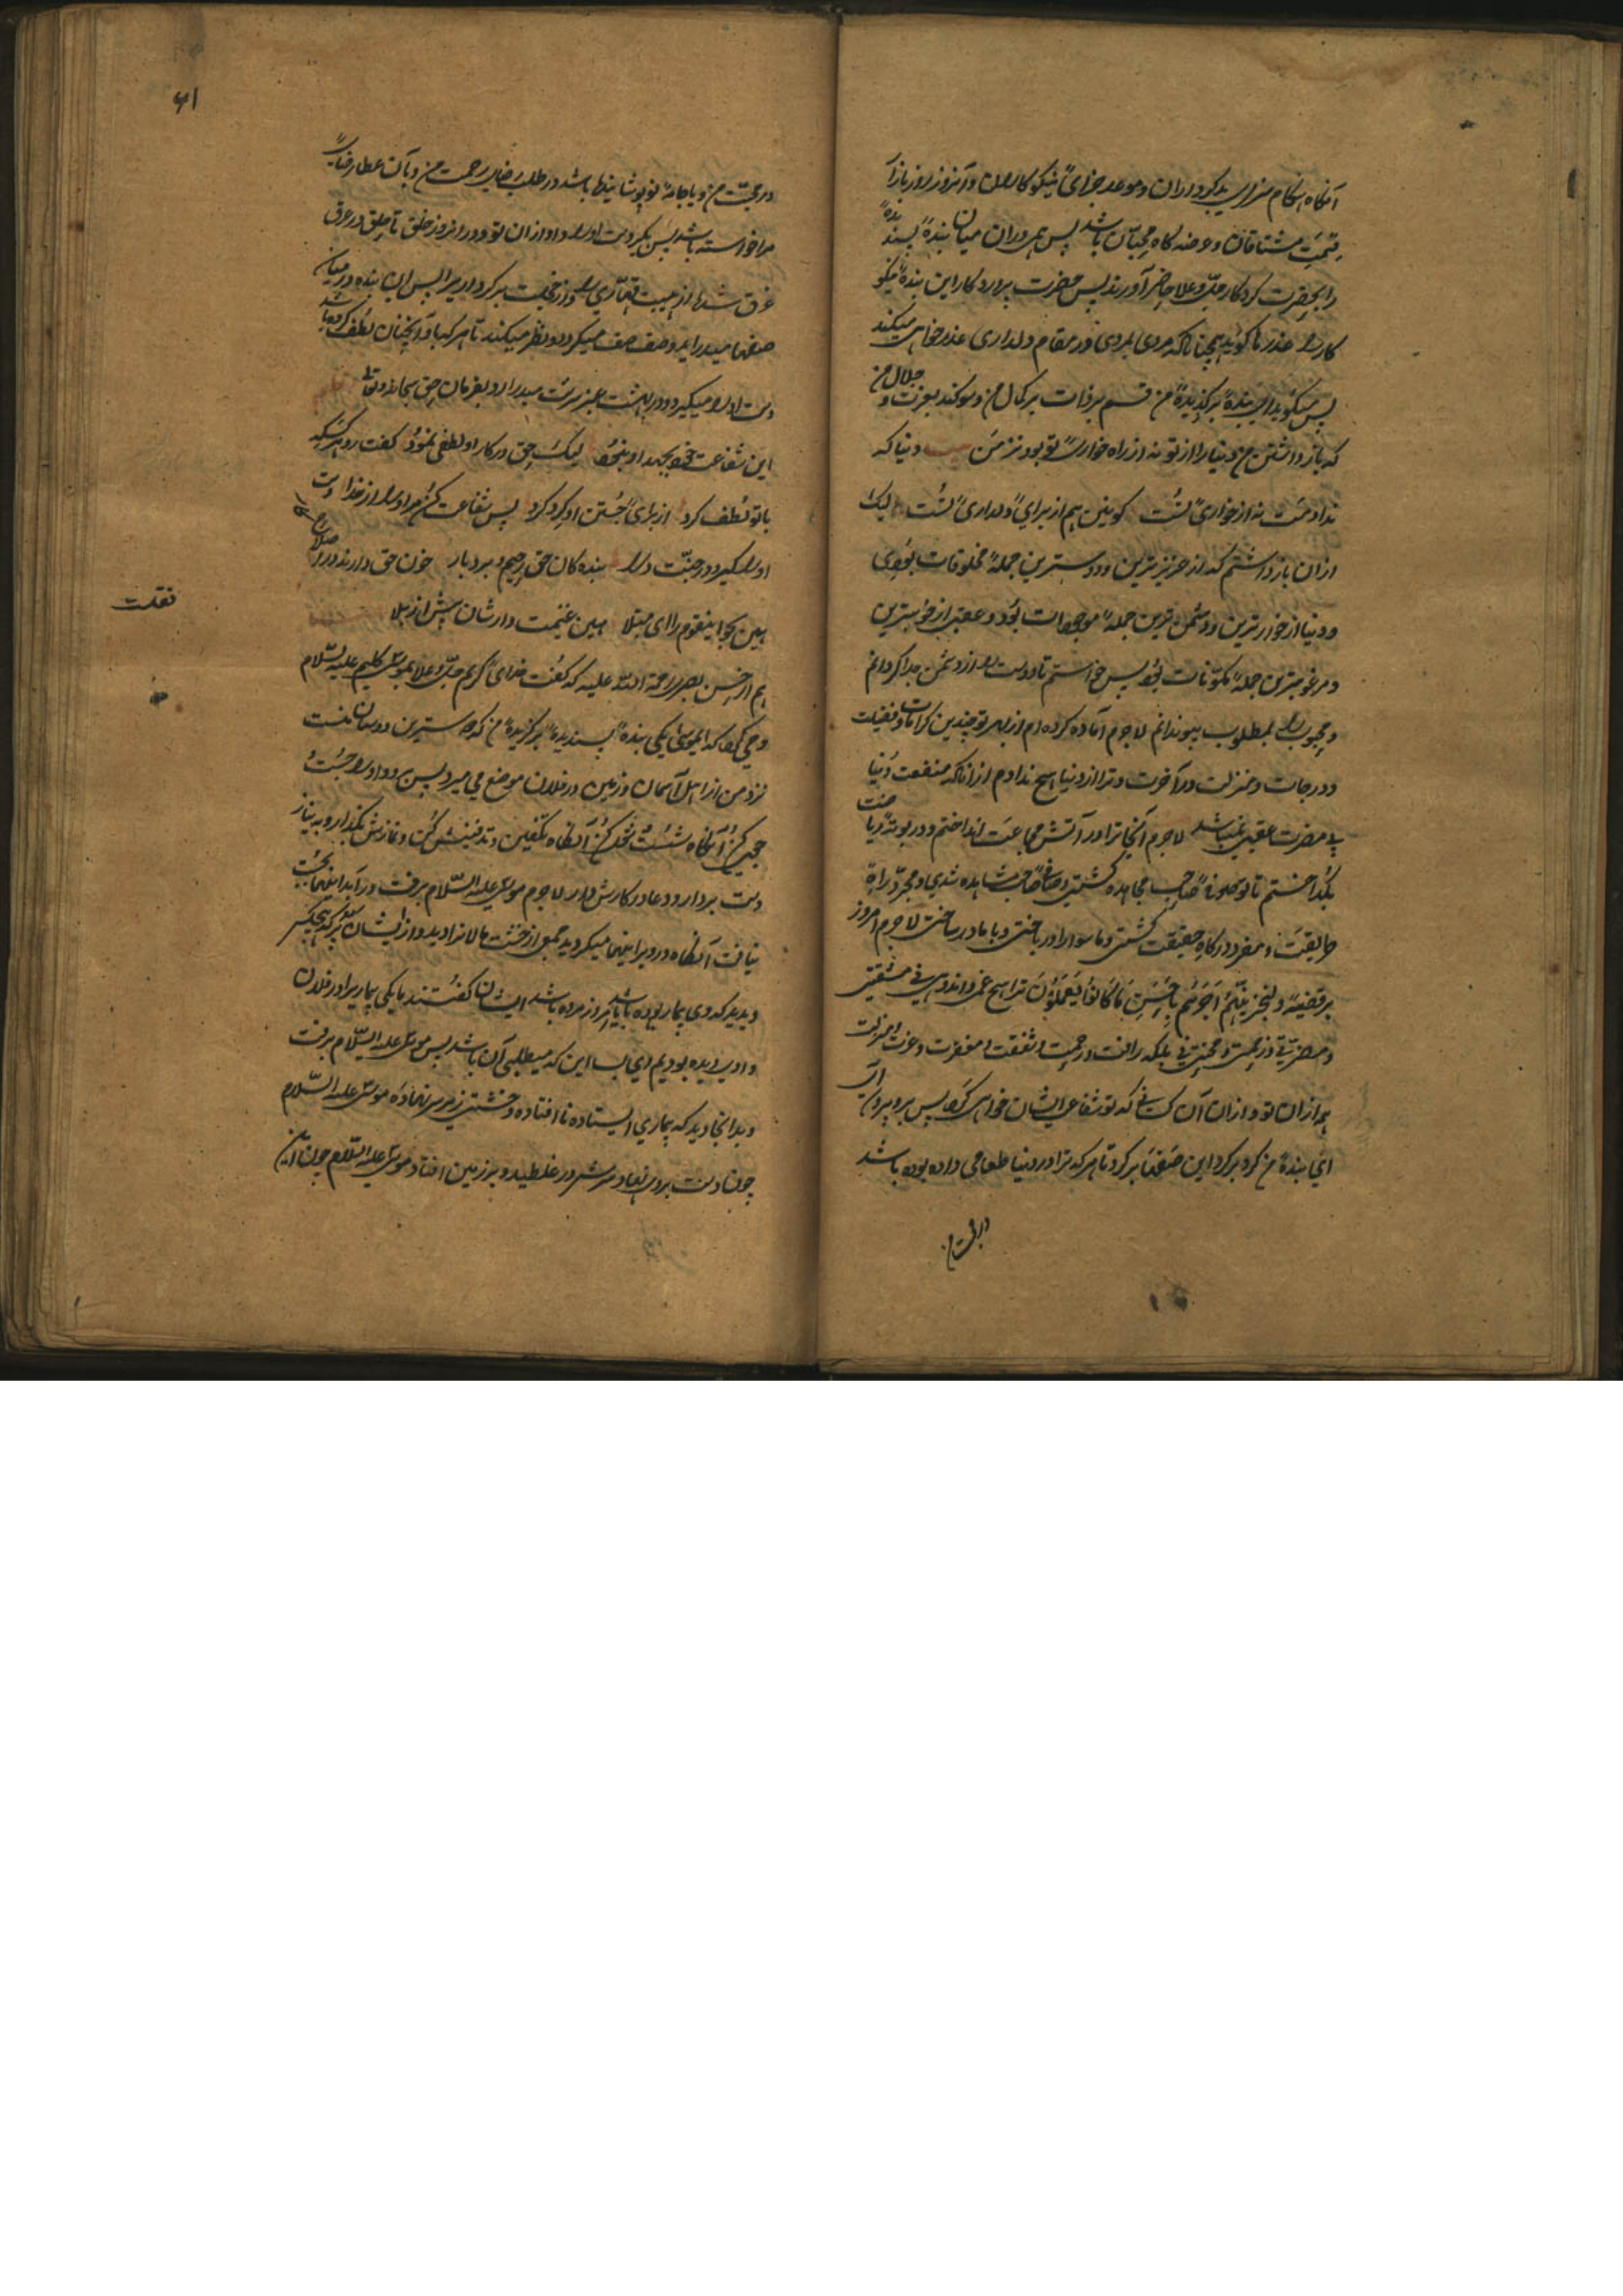 آنگاه هنگام سزای بدکرداران و موعد جزای نیکوکاران و آنروز روز بازار
قیمت مشتاقان و عرضه گاه محبان باشد پس هم دران میان بندهٔ پسندیدهٔ
را بحضرت کردگار جل و علا حاضر آورند پس حضرت پروردگار این بندهٔ نیکو
کار را عذرها گوید همچنانکه مردی بمردی در مقام دلداری عذرخواهی میکند
پس میگوید ای بندهٔ برگزیدهٔ من قسم بر ذات بر کمال من و سوگند بعزت و جلال من
که بازداشتن من دنیا را از تو نه از راه خواری تو بود نزد من دنیا که
ندادمت نه از خواری تست کونین هم از برای دلداری تست لیک
ازان بازداشتم که از عزیزترین و دوسترین جمله مخلوقات بودی
و دنیا از خوارترین و دشمن ترین جمله موجودات بود و عقبی از خوبترین
و مرغوبترین جمله مکونات بود پس خواستم تا دوست را از دشمن جدا گردانم
و محبوب را بمطلوب پیوندانم لاجرم آماده کرده ام از بهر تو چندین کرامات و فضیلت
و درجات و منزلت در آخرت و ترا از دنیا هیچ ندادم ازانکه منفعت دنیا
بی مضرت عقبی نمیباشد لاجرم آنجا ترا در آتش مجاعت انداختم و در بوتهٔ ریاضت
بگداختم تا تو صاحب مجاهده گشتی و صاحب مشاهده شدی و مجرد راه
طریقت و مفرد درگاه حقیقت گشتی و ماسوا را درباختی و با ما درساختی لاجرم امروز
بر قضیهٔ و لنجزینهم اجرهم باحسن ما کانوا یعملون ترا هیچ غمی و اندوهی نی مشقتی
و مضرتی نی زحمتی و محنتی نی بلکه رافت و رحمت و شفقت و مغفرت و عزت
هم ازان تو و ازان آن کسانی که تو شفاعت ایشان خواهی کرد پس برو
ای بندهٔ من گرد برگرد این صفها برگرد تا هر که ترا در دنیا طعامی داده بوده باشد
در محبت من
۶۱
در محبت من و یا جامهٔ نو پوشانیده باشد در طلب رضای رحمت من و بآن عطا رضای
مرا خواسته باشد پس بگیر دست او را و او ازان تو و در آنروز خلق تا حلق در عرق
غرق شده از هیبت قهاری و از خجلت بدکرداری پس این بنده در میان
صفها میدرآید و صف صف میگردد و نظر میکند تا هر که با او آنچنان لطف کرده باشد
دست او را میگیرد و در بهشت عنبر سرشت میدرآرد بفرمان حق سبحانه و تعالی
این شفاعت خود بجهد او نبود لیک حق در کار او لطفی نمود گفت رو
با تو لطف کرد از برای جستن او گرد کرد پس شفاعت کن مر او را از خدا دست
او را گیر و در جنت درآ بنده گان حق رحیم و بردبار خوی حق دارند در اصلاح کار
هین بجو اینقوم را ای مبتلا هین غنیمت دارشان پیش از بلا
نقلست
هم از حسن بصری رحمة الله علیه که گفت خدای کریم جل و علا بموسی کلیم علیه السلام
وحی کرد که ای موسی یکی بندهٔ پسندیدهٔ برگزیدهٔ من که دوسترین دوستان منست
نزد من از اهل آسمان و زمین در فلان موضع می میرد پس برو او را جست
و جوی کن آنگاه شست و شو کن آنگاه تکفین و تدفینش کن و نمازش بگذار و به نیاز
دست بردار و دعا در کارش دار لاجرم موسی علیه السلام برفت و در آبدانیها بجست
نیافت آنگاه در ویرانیها میگردید جمعی از خشت مالانرا دید و از ایشان پرسید که هیچکس
دیدید که وی بیمار بوده باشد یا امروز مرده باشد ایشان گفتند یا یکی بیماریرا در فلان
وادی دیده بودیم ای بسا این که میطلبی آن باشد پس موسی علیه السلام برفت
و بدانجا دید که بیماری ایستاده نا افتاده و خشتی زیر سر نهاده موسی علیه السلام
چون دست بروی نهاد سرش در غلطید و بر زمین افتاد موسی علیه السلام چون این